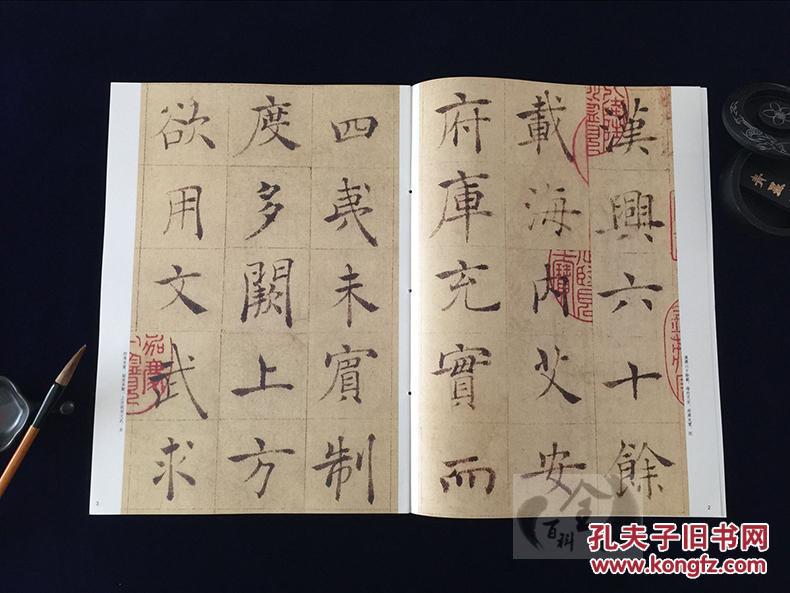 漢興六十餘
載海內艾安
府庫充實而
四夷未賓制
度多闕上方
欲用文武求
2
3
百科
全
孔夫子旧书网
www.kongfz.com